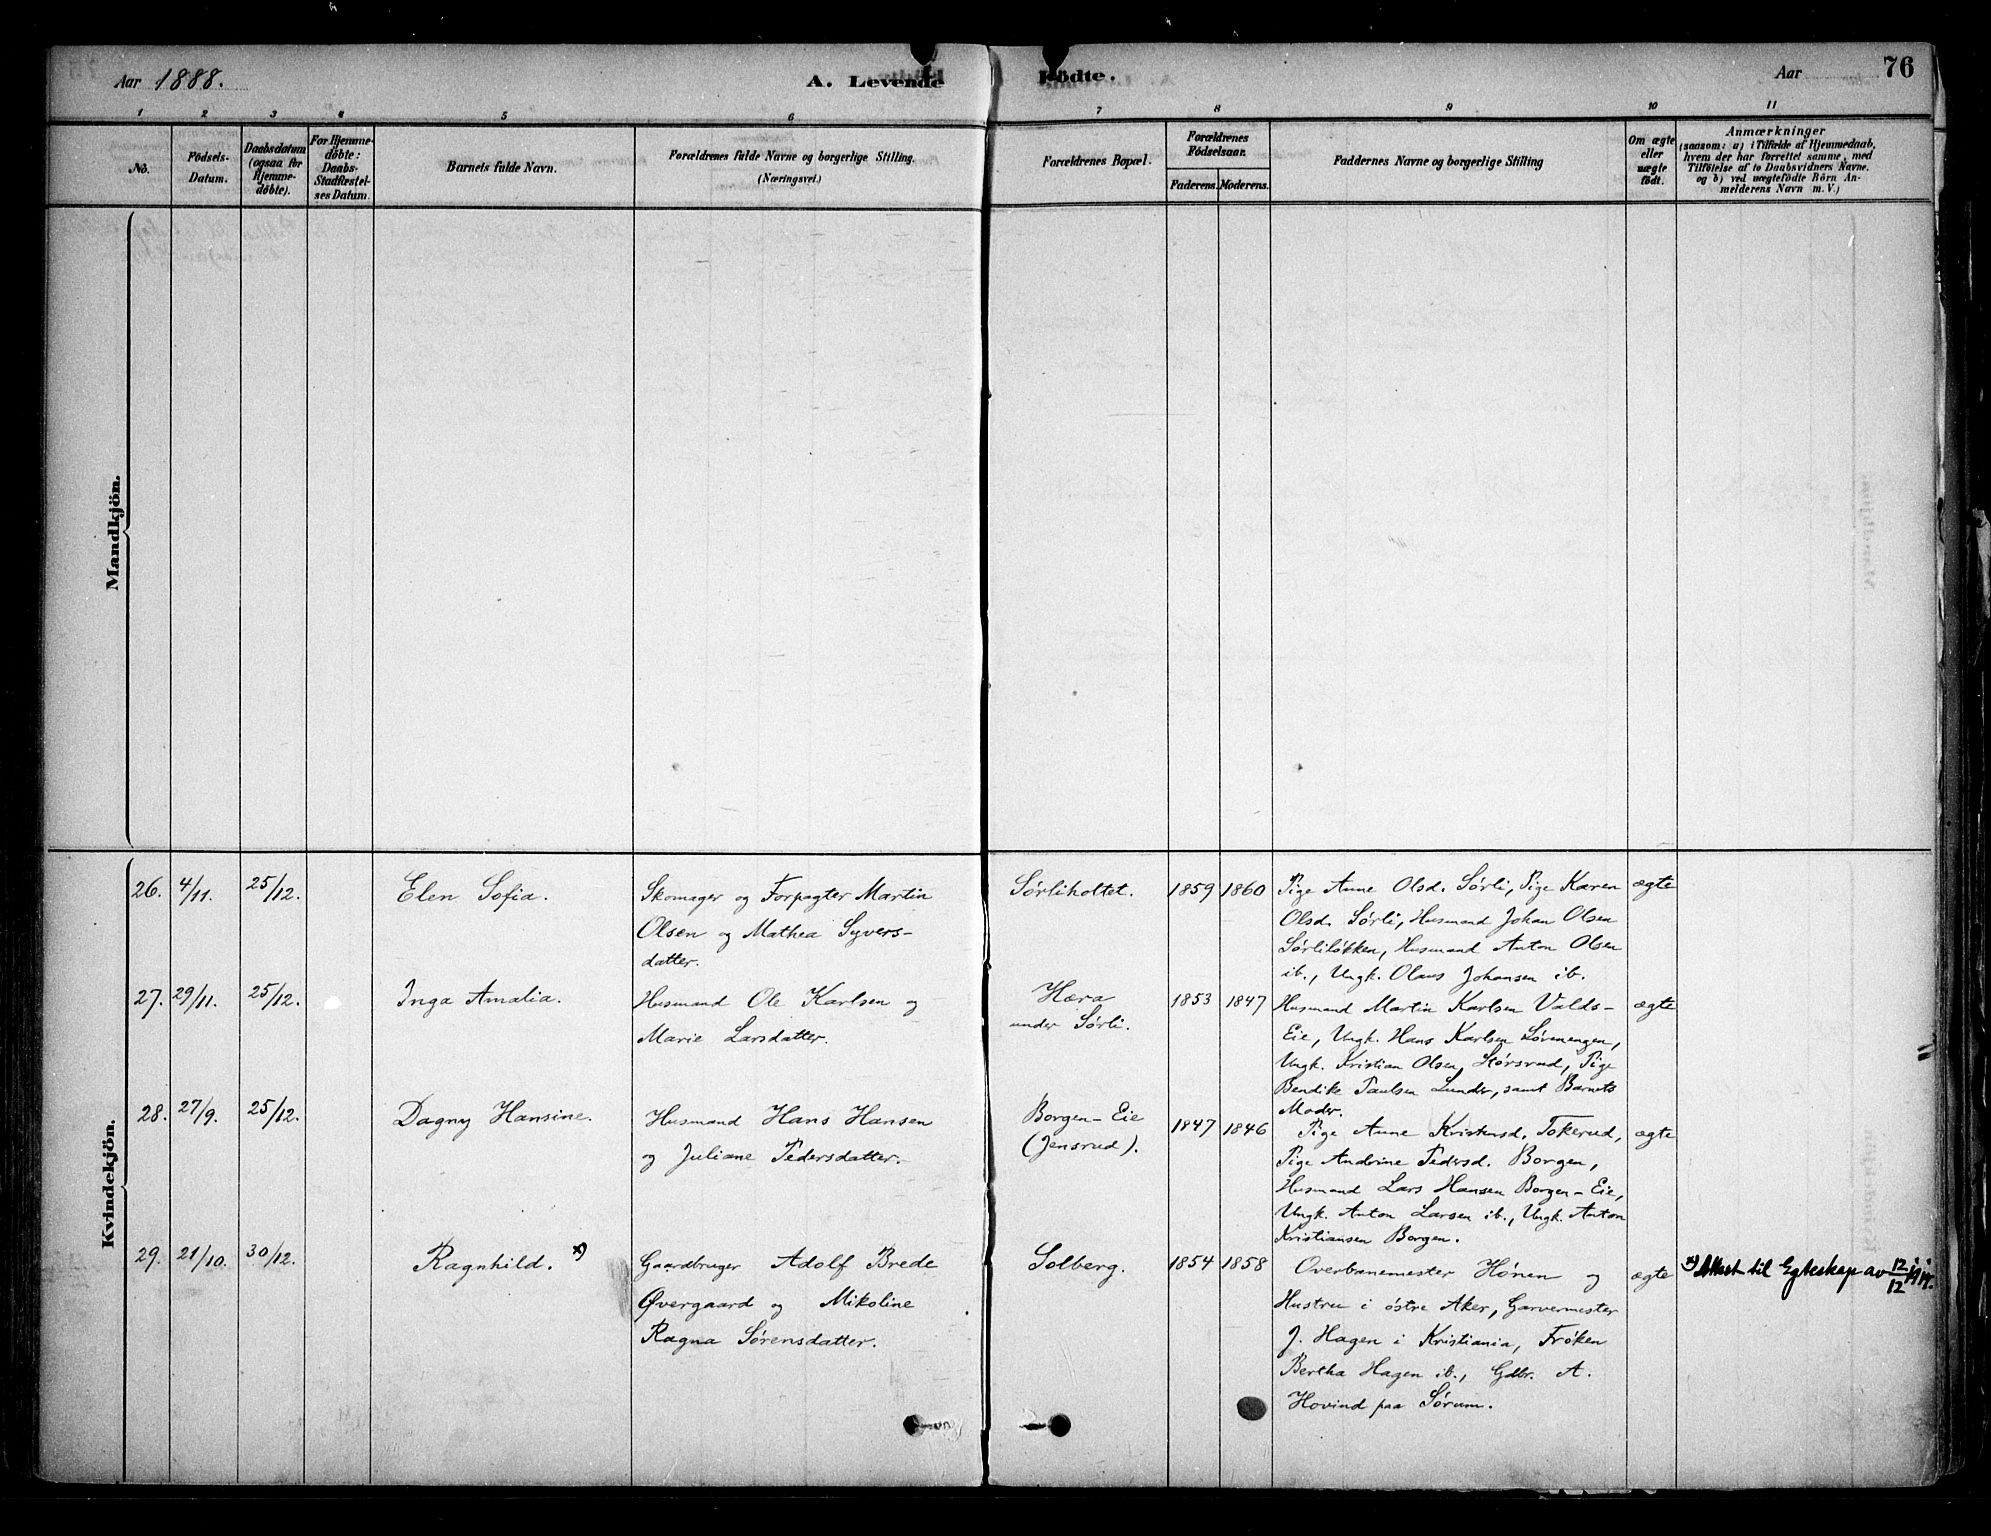 Aar 1888. A. Levende Födte. Aar 76
1 2 3 4 5 6 7 8 9 10 11
No.
Födsels-
Datum.
Daabsdatum
(ogsaa for
Hjemme-
döbte).
For Hjemme-
döbte:
Daabs-
Stadfæstel-
ses Datum.
Barnets fulde Navn.
Forældrenes fulde Navne og borgerlige Stilling.
(Næringsvei.)
Forældrenes Bopæl.
Forældrenes
Födselsaar.
Faderens. Moderens.
Faddernes Navne og borgerlige Stilling
Om ægte
eller
uægte
födt.
Anmærkninger
(saasom: a) i Tilfælde af Hjemmedaab,
hvem der har forrettet samme, med
Tilföielse af to Daabsvidners Navne.
og b) ved uægtefödte Börn An-
melderens Navn m. V.)
Mandkjön.
Kvindekjön.
26. 4/11. 25/12. Elen Sofia.
Skomager og Forpagter Martin
Olsen og Mathea Syvers-
datter.
Sørliholtet. 1859 1860
Pige Anne Olsd. Sørli, Pige Karen
Olsd. Sørli, Husmand Johan Olsen
Sørliløkken, Husmand Anton Olsen
ib., Ungk. Olaus Johansen ib.
ægte
27. 29/11. 25/12. Inga Amalia.
Husmand Ole Karlsen og
Marie Larsdatter.
Hæra
under Sørli.
1853 1847
Husmand Martin Karlsen Valds-
Eie, Ungk. Hans Karlsen Lørenengen,
Ungk. Kristian Olsen Størsrud, Pige
Bendike Paulsen Lunder, samt Barnets
Moder.
ægte
28. 27/9. 25/12. Dagny Hansine.
Husmand Hans Hansen
og Juliane Pedersdatter.
Borgen-Eie
(Jensrud).
1847 1846
Pige Anne Kristensd. Tokerud,
Pige Andrine Pedersd. Borgen,
Husmand Lars Hansen Borgen-Eie,
Ungk. Anton Larsen ib., Ungk. Anton
Kristiansen Borgen.
ægte
29. 21/10. 30/12. Ragnhild. x)
Gaardbruger Adolf Brede
Øvergaard og Mikoline
Ragna Sørensdatter.
Solberg. 1854 1858
Overbanemester Hønen og
Hustru i østre Aker, Garvermester
J. Hagen i Kristiania, Frøken
Bertha Hagen ib., Gdbr. A.
Hovind paa Sørum.
ægte
x) Attest til Egteskap av 12/12